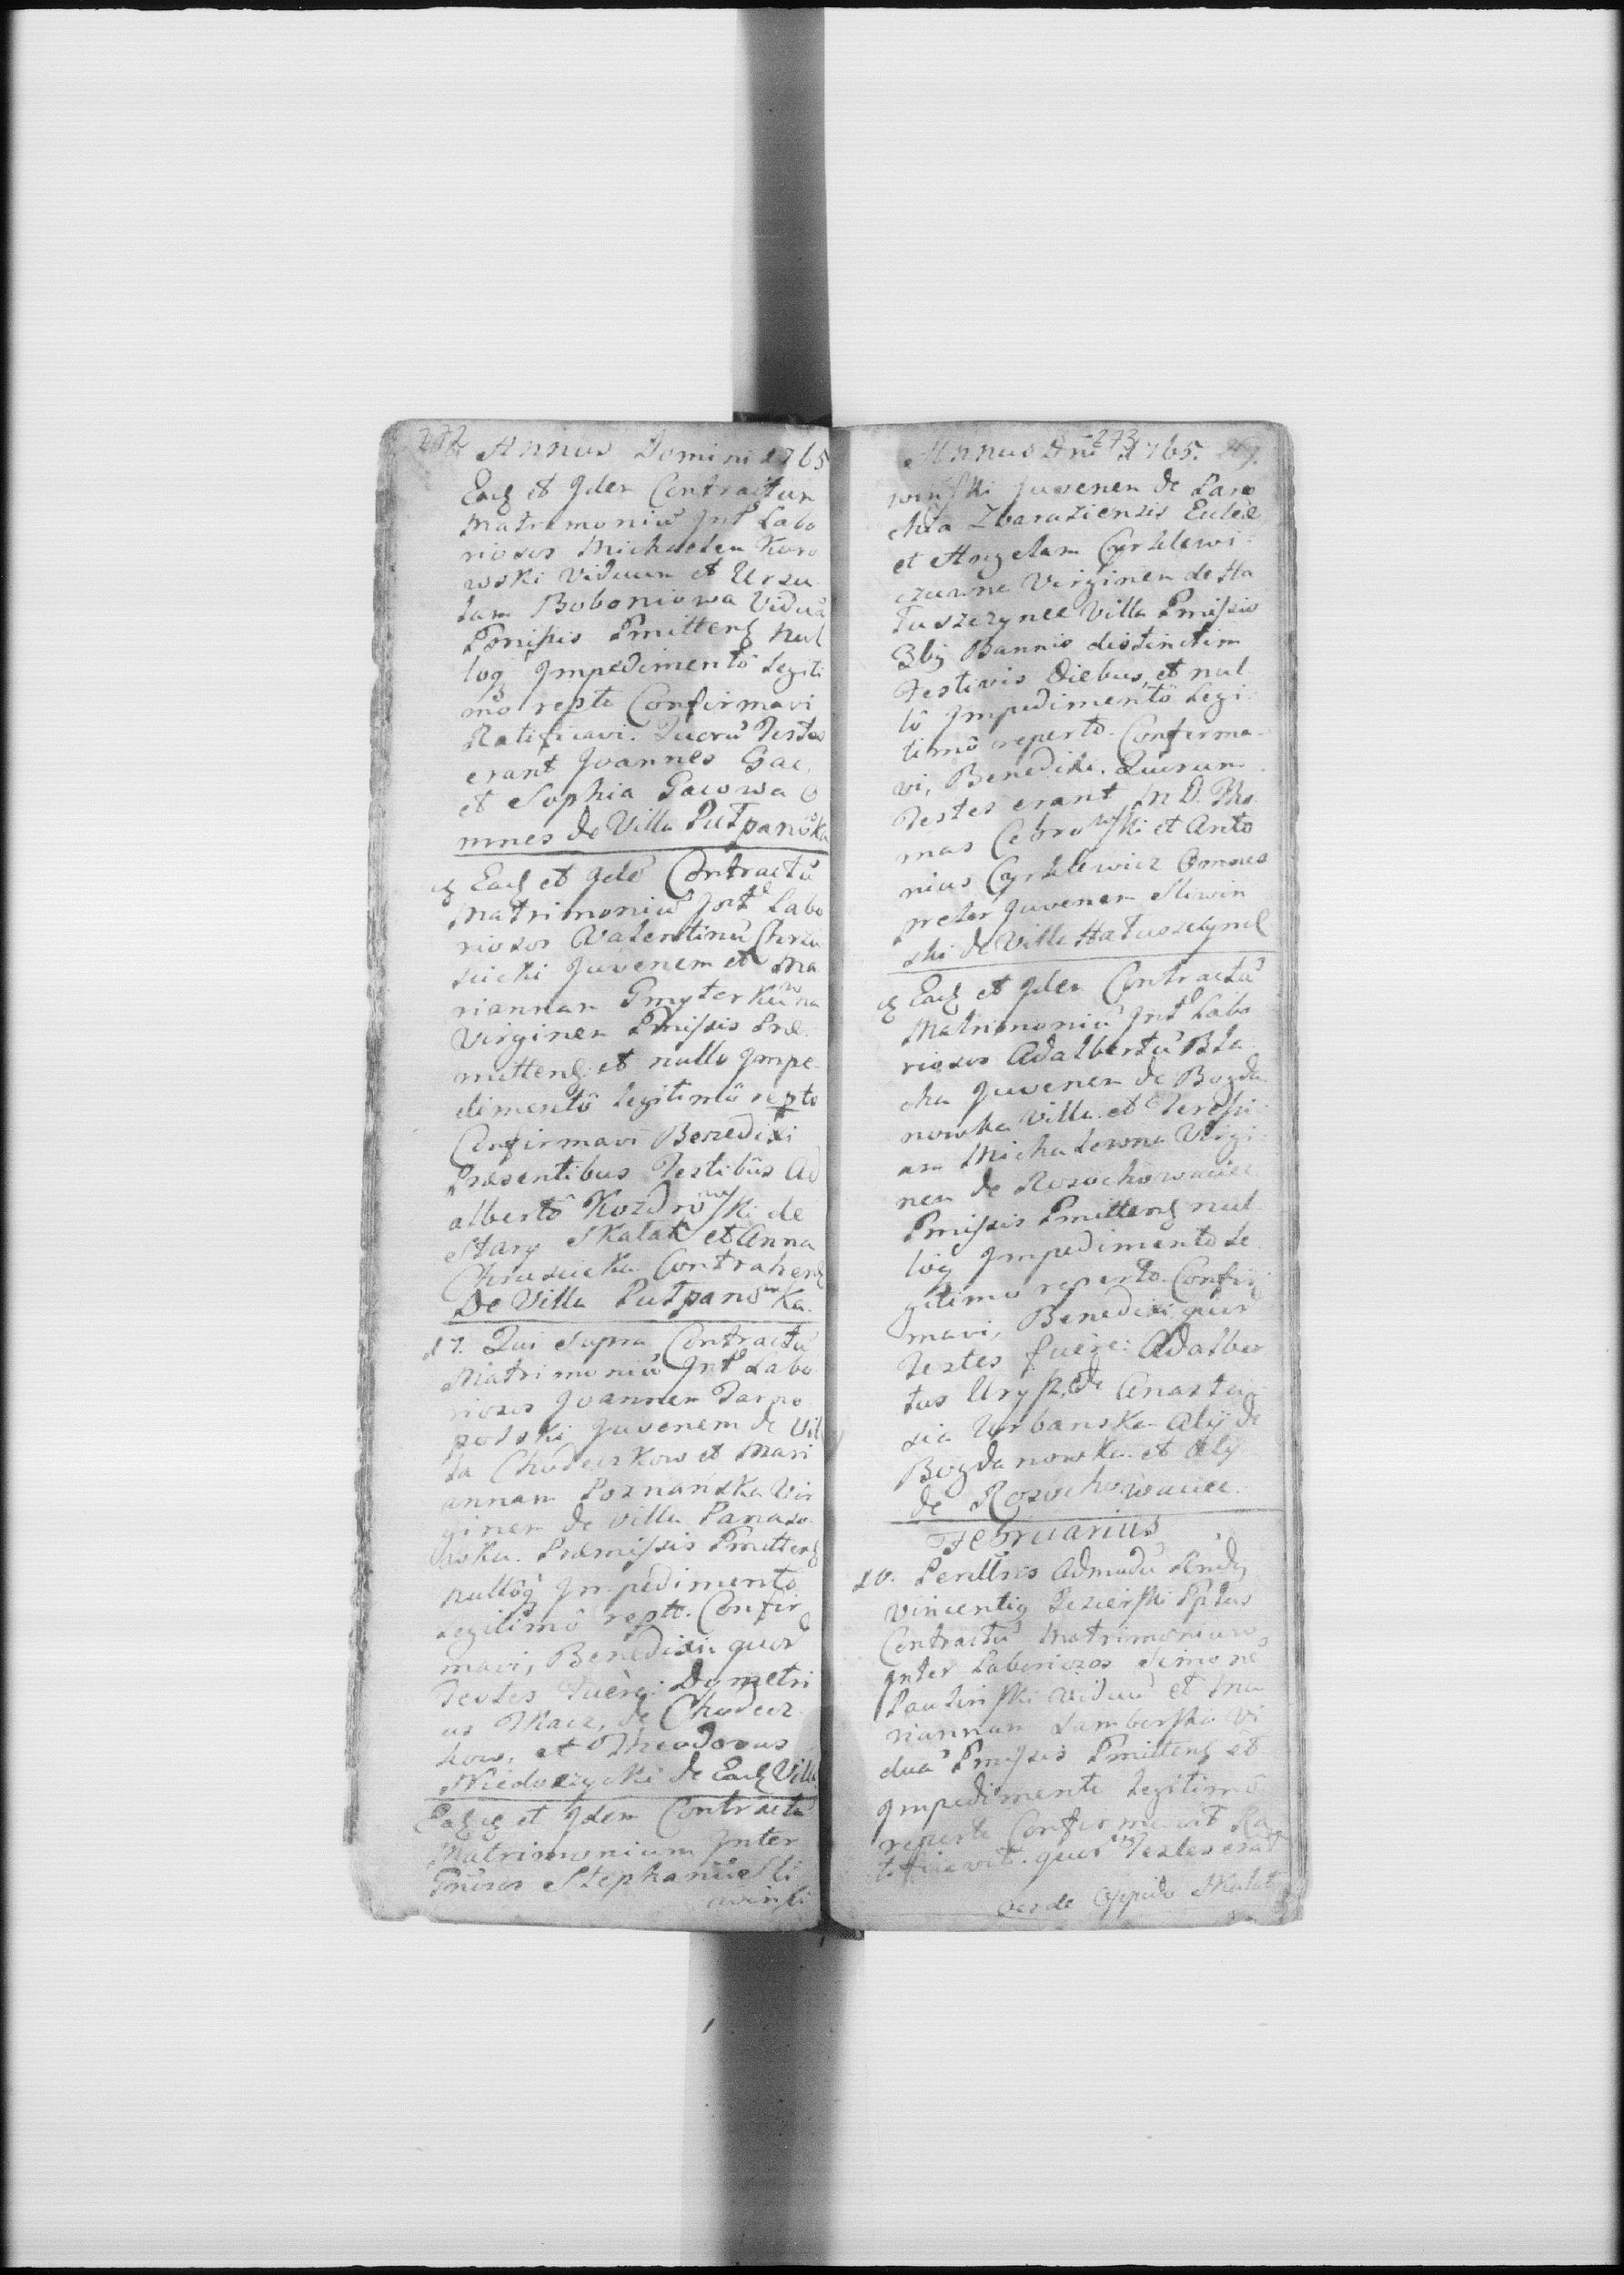 272
Annus Domini 1765
Eadē et Idem Contractum
Matrimoniū Intr Labo
riosos Michaelem Kuro
wski Viduum et Ursu
lam Boboniowa Viduā
Pmissis Pmittenꝫ nul
loq Impedimentô Legiti
mo repto Confirmavi
Ratificavi. Quorū Testes
erant Joannes Gac,
et Sophia Gacowa O
mnes de Villa Putpanowka
Eadē et Idē Contractū
Matrimoniū Intr Labo
riosos Valentinū
Juvenem et Ma
riannam
Virginem Pmissis Præ
mittenꝫ et nullo Impe
dimentô Legitimô repto
Confirmavi Benedixi
Præsentibus Testibus Ad
albertô Kozdrowski de
Stary Skałat et Anna
Contrahenꝫ
De Villa Putpanowka.
17. Qui supra Contractū
Matrimoniū Intr Labo
riosos Joannem Tarno
polski Juvenem de Vil
la Chodaczkow et Mari
annam Poznańska Vir
ginem de villa Panaso
wka. Præmissis Pmittenꝫ
nullôq Impedimento
Legitimô repto. Confir
mavi, Benedixi quor
Testes fuêre: Dymetri
us de Chodacz
kow, et Theodorus
de Eadē Villa
Eadē et Idem Contractū
Matrimonium Inter
Stephanū Sli
winski
273
Annus Dni 1765. 267.
winski Juvenem de Paro
chia Zbaraziensis Eccle
et Angelam Cyrklewi
czuwna Virginem de Ha
łuszczynce Villa Pmissis
3bꝫ Bannis distinctim
Festivis Diebus, et nul
lô Impedimentô Legi
timô reperto. Confirma
vi, Benedixi. Quorum
Testes erant M D. Tho
mas Cebrowski et Anto
nius Cyrklewicz Omnes
preter Juvenem Sliwin
ski de Villa Hałuszczynce
Eadē et Idem Contractū
Matrimoniū Intr Labo
riosos Adalbertū Bla
cha Juvenem de Bogda
nowka Villa et Teresi
am Michalowna Virgi
nem de Rosochowaciec
Pmissis Pmittenꝫ nul
lôq Impedimento Le
gitimo reperto. Confir
mavi, Benedixi quor
Testes fuêre: Adalber
tus Anasta
sia Urbanska Alij de
Bogdanowka et Alij
de Rosochowaciec.
Februarius
10. Perillris Admodū Rndꝫ
Vincentiꝫ Jezierski Pptus
Contractū Matrimonium
Inter Laboriosos Simone
Viduū et Ma
riannam Vi
duā Pmissis Pmittenꝫ et
Impedimento Legitimô
reperto Confirmavit Ra
tificavit. quor Testes erāt
Oes de Oppido Skałat